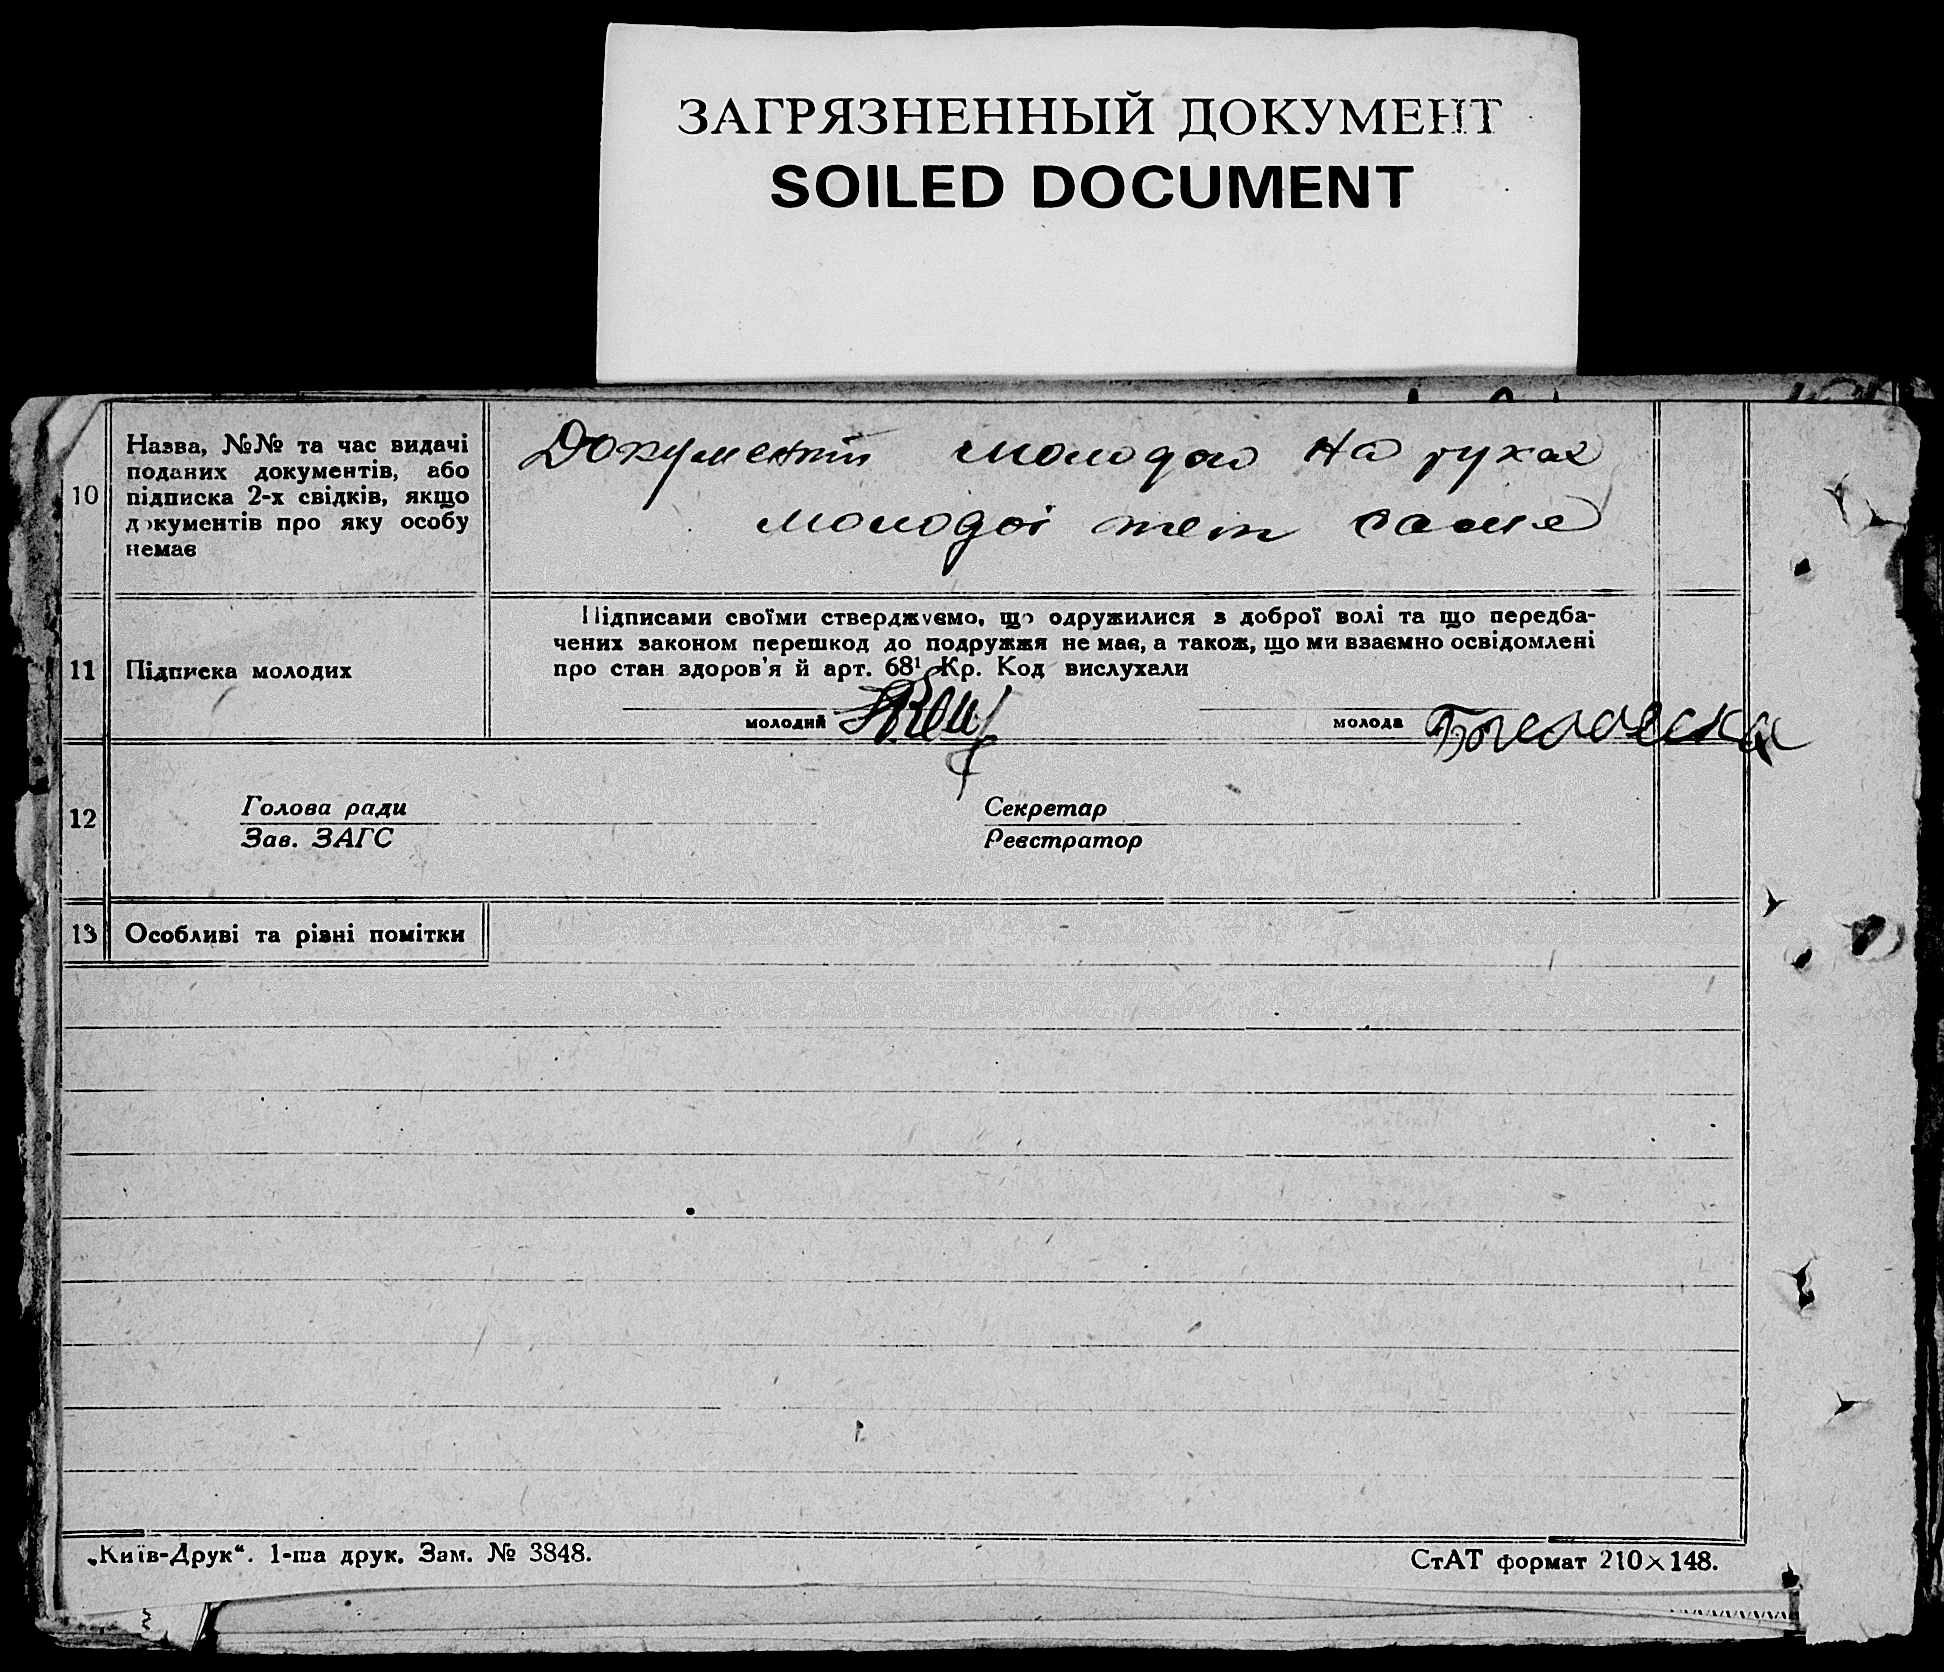 ЗАГРЯЗНЕННЫЙ ДОКУМЕНТ
SOILED DOCUMENT
10
Назва, №№ та час видачі
поданих документів, або
підписка 2-х свідків, якщо
документів про яку особу
немає
Документи молодого на руках
молодої теж саме
11
Підписка молодих
Підписами своїми стверджуємо, що одружилися з доброї волі та що передба-
чених законом перешкод до подружжя не має, а також, що ми взаємно освідомлені
про стан здоров'я й арт. 68¹ Кр. Код вислухали
молодий
молода
12
Голова ради
Зав. ЗАГС
Секретар
Реєстратор
13
Особливі та різні помітки
„Київ-Друк“. 1-ша друк. Зам. № 3848.
СтАТ формат 210×148.